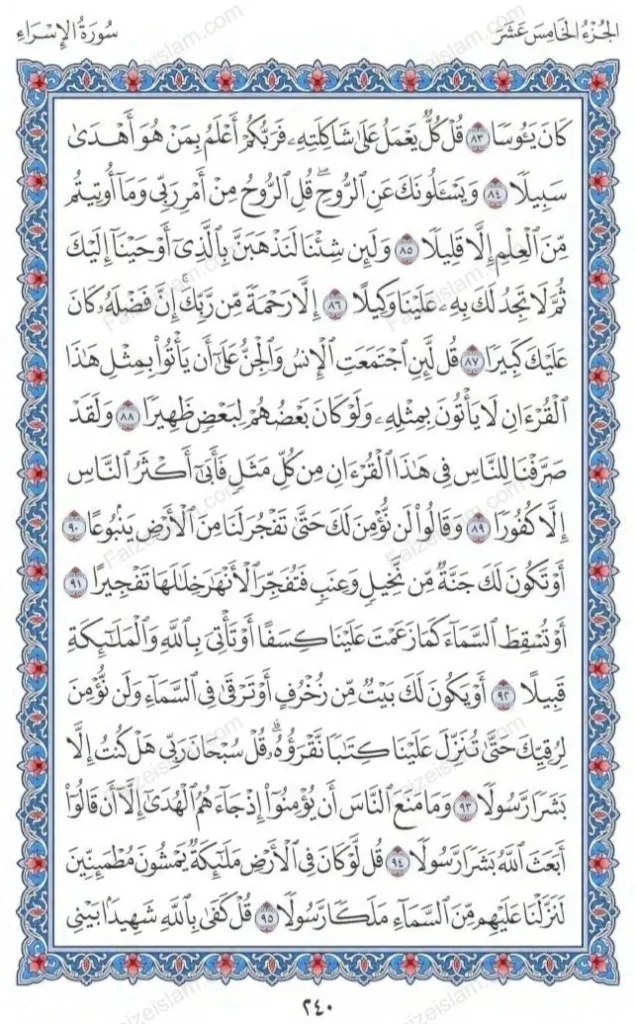 الجُزْءُ الخَامِسَ عَشَرَ
سُورَةُ الإِسْرَاءِ
كَانَ يَـُٔوسًا ٨٣ قُلْ كُلٌّ يَعْمَلُ عَلَىٰ شَاكِلَتِهِۦ فَرَبُّكُمْ أَعْلَمُ بِمَنْ هُوَ أَهْدَىٰ
سَبِيلًا ٨٤ وَيَسْـَٔلُونَكَ عَنِ ٱلرُّوحِۖ قُلِ ٱلرُّوحُ مِنْ أَمْرِ رَبِّى وَمَآ أُوتِيتُم
مِّنَ ٱلْعِلْمِ إِلَّا قَلِيلًا ٨٥ وَلَئِن شِئْنَا لَنَذْهَبَنَّ بِٱلَّذِىٓ أَوْحَيْنَآ إِلَيْكَ
ثُمَّ لَا تَجِدُ لَكَ بِهِۦ عَلَيْنَا وَكِيلًا ٨٦ إِلَّا رَحْمَةً مِّن رَّبِّكَۚ إِنَّ فَضْلَهُۥ كَانَ
عَلَيْكَ كَبِيرًا ٨٧ قُل لَّئِنِ ٱجْتَمَعَتِ ٱلْإِنسُ وَٱلْجِنُّ عَلَىٰٓ أَن يَأْتُوا۟ بِمِثْلِ هَٰذَا
ٱلْقُرْءَانِ لَا يَأْتُونَ بِمِثْلِهِۦ وَلَوْ كَانَ بَعْضُهُمْ لِبَعْضٍ ظَهِيرًا ٨٨ وَلَقَدْ
صَرَّفْنَا لِلنَّاسِ فِى هَٰذَا ٱلْقُرْءَانِ مِن كُلِّ مَثَلٍ فَأَبَىٰٓ أَكْثَرُ ٱلنَّاسِ
إِلَّا كُفُورًا ٨٩ وَقَالُوا۟ لَن نُّؤْمِنَ لَكَ حَتَّىٰ تَفْجُرَ لَنَا مِنَ ٱلْأَرْضِ يَنۢبُوعًا ٩٠
أَوْ تَكُونَ لَكَ جَنَّةٌ مِّن نَّخِيلٍ وَعِنَبٍ فَتُفَجِّرَ ٱلْأَنْهَٰرَ خِلَٰلَهَا تَفْجِيرًا ٩١
أَوْ تُسْقِطَ ٱلسَّمَآءَ كَمَا زَعَمْتَ عَلَيْنَا كِسَفًا أَوْ تَأْتِىَ بِٱللَّهِ وَٱلْمَلَٰٓئِكَةِ
قَبِيلًا ٩٢ أَوْ يَكُونَ لَكَ بَيْتٌ مِّن زُخْرُفٍ أَوْ تَرْقَىٰ فِى ٱلسَّمَآءِ وَلَن نُّؤْمِنَ
لِرُقِيِّكَ حَتَّىٰ تُنَزِّلَ عَلَيْنَا كِتَٰبًا نَّقْرَؤُهُۥۗ قُلْ سُبْحَانَ رَبِّى هَلْ كُنتُ إِلَّا
بَشَرًا رَّسُولًا ٩٣ وَمَا مَنَعَ ٱلنَّاسَ أَن يُؤْمِنُوٓا۟ إِذْ جَآءَهُمُ ٱلْهُدَىٰٓ إِلَّآ أَن قَالُوٓا۟
أَبَعَثَ ٱللَّهُ بَشَرًا رَّسُولًا ٩٤ قُل لَّوْ كَانَ فِى ٱلْأَرْضِ مَلَٰٓئِكَةٌ يَمْشُونَ مُطْمَئِنِّينَ
لَنَزَّلْنَا عَلَيْهِم مِّنَ ٱلسَّمَآءِ مَلَكًا رَّسُولًا ٩٥ قُلْ كَفَىٰ بِٱللَّهِ شَهِيدًۢا بَيْنِى
٢٤٠
Faizeislam.com